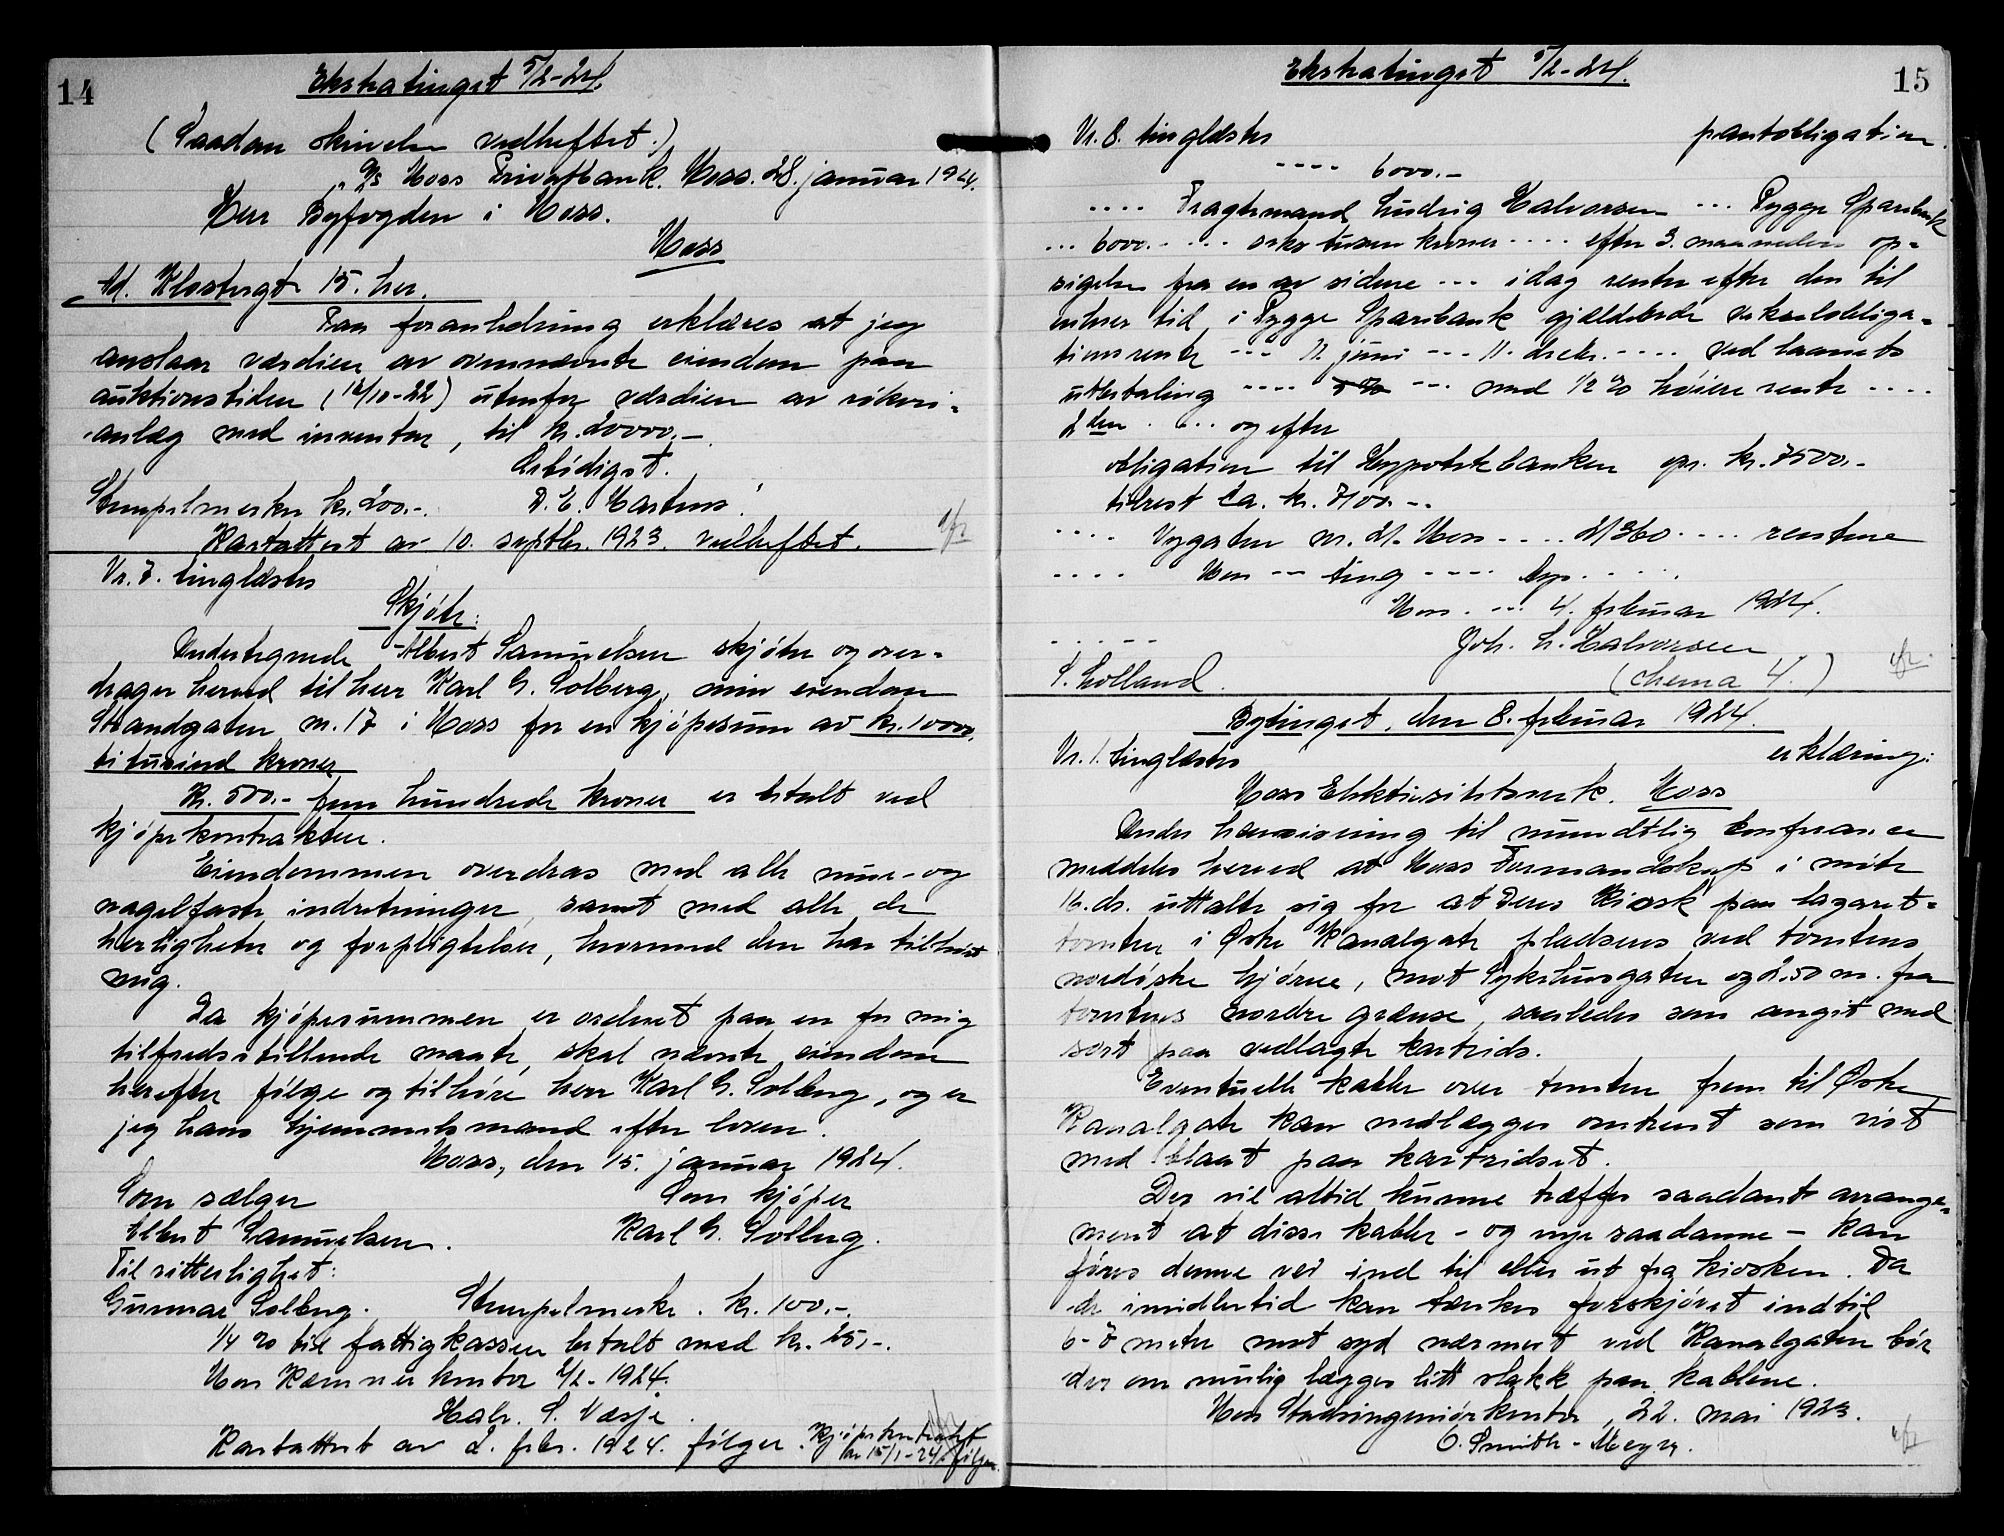 14
Ekstratinget 5/2-24.
(Saadan skrivelse vedheftet.)
A/S Moss Privatbank. Moss. 28. januar 1924.
Herr Byfogden i Moss.
Moss
Ad. Klostergt 15. her.
Paa foranledning erklæres at jeg
anslaar værdien av ovennævnte eiendom paa
auktionstiden (12/10-22) utenfor værdien av
anlæg med inventar, til kr. 20000.-
Ærbødigst.
Stempelmerke kr. 200.-. D. E. Martens.
Kartattest av 10. septbr. 1923 vedheftet.
Nr. 7. tinglæstes
Skjøte:
Undertegnede Albert Samuelsen skjøter og over-
drager herved til herr Karl G. Solberg, min eiendom
Strandgaten nr. 17 i Moss for en kjøpesum av kr. 10000,
titusind kroner
Kr. 500.- fem hundrede kroner er betalt ved
kjøpekontrakten.
Eiendommen overdras med alle mur- og
nagelfaste indretninger, samt med alle de
herligheter og forpligtelser, hvormed den har tilhørt
mig.
Da kjøpesummen er ordnet paa en for mig
tilfredsstillende maate, skal nævnte eiendom
herefter følge og tilhøre herr Karl G. Solberg, og er
jeg hans hjemmelsmand efter loven.
Moss, den 15. januar 1924.
Som sælger Som kjøper
Albert Samuelsen. Karl G. Solberg.
Til vitterlighet:
Gunnar Solberg. Stempelmerke. kr. 100.-.
1/4 % til fattigkassen betalt med kr. 25,-.
Moss Kæmnerkontor 2/2-1924.
Halv. S. Væsje.
Kartattest av 2. febr. 1924. følger. Kjøpekontrakt
av 15/1-24 følger.
15
Ekstratinget 5/2-24.
Nr. 8. tinglæstes pantobligation.
---- 6000.-
---- Fragtemand Ludvig Halvorsen --- Rygge Sparebank
... 6000.- ... seks tusen kroner .... efter 3. maaneders op-
sigelse fra en av sidene --- idag renter efter den til
enhver tid i Rygge Sparebank gjældende vekselobliga-
tionsrente --- 11. juni --- 11. decbr. .... ved laanets
utbetaling ---- --- med 1/2 % høiere rente ....
2den ... og efter
obligation til Hypotekbanken opr. kr. 7500.-
tilrest ca. kr. 7100.-.
.... Vogaten nr. 21. Moss .... 21360 .... rentene
.... Moss -- ting ---- byr. ....
Moss. ... 4. februar 1924.
..... Joh. L. Halvorsen
S. Lolland. (chema 4.)
Bytinget, den 8. februar 1924.
Nr. 1. tinglæstes erklæring:
Moss Elektricitetsverk. Moss
Under henvisning til mundtlig konferance
meddeles herved at Moss Formandskap i møte
16. ds. uttalte sig for at Deres Kiosk paa lazaret-
tomten i Østre Kanalgate plasseres ved tomtens
nordøstre hjørne, mot Sykehusgaten og 2.50 m. fra
tomtens nordre grænse, saaledes som angit med
sort paa vedlagte kartrids.
Eventuelle kabler over tomten frem til Østre
Kanalgate kan nedlægges omtrent som vist
med blaat paa kartridset.
Der vil altid kunne træffes saadant arrange-
ment at disse kabler - og nye saadanne - kan
føres denne vei ind til eller ut fra kiosken. Da
de imidlertid kan tænkes forskjøvet indtil
6-7 meter mot syd nærmest ved Kanalgaten bør
der om mulig lægges litt slakk paa kablene.
Moss Stadsingeniørkontor, 22. mai 1923.
O. Smith-Meyer.